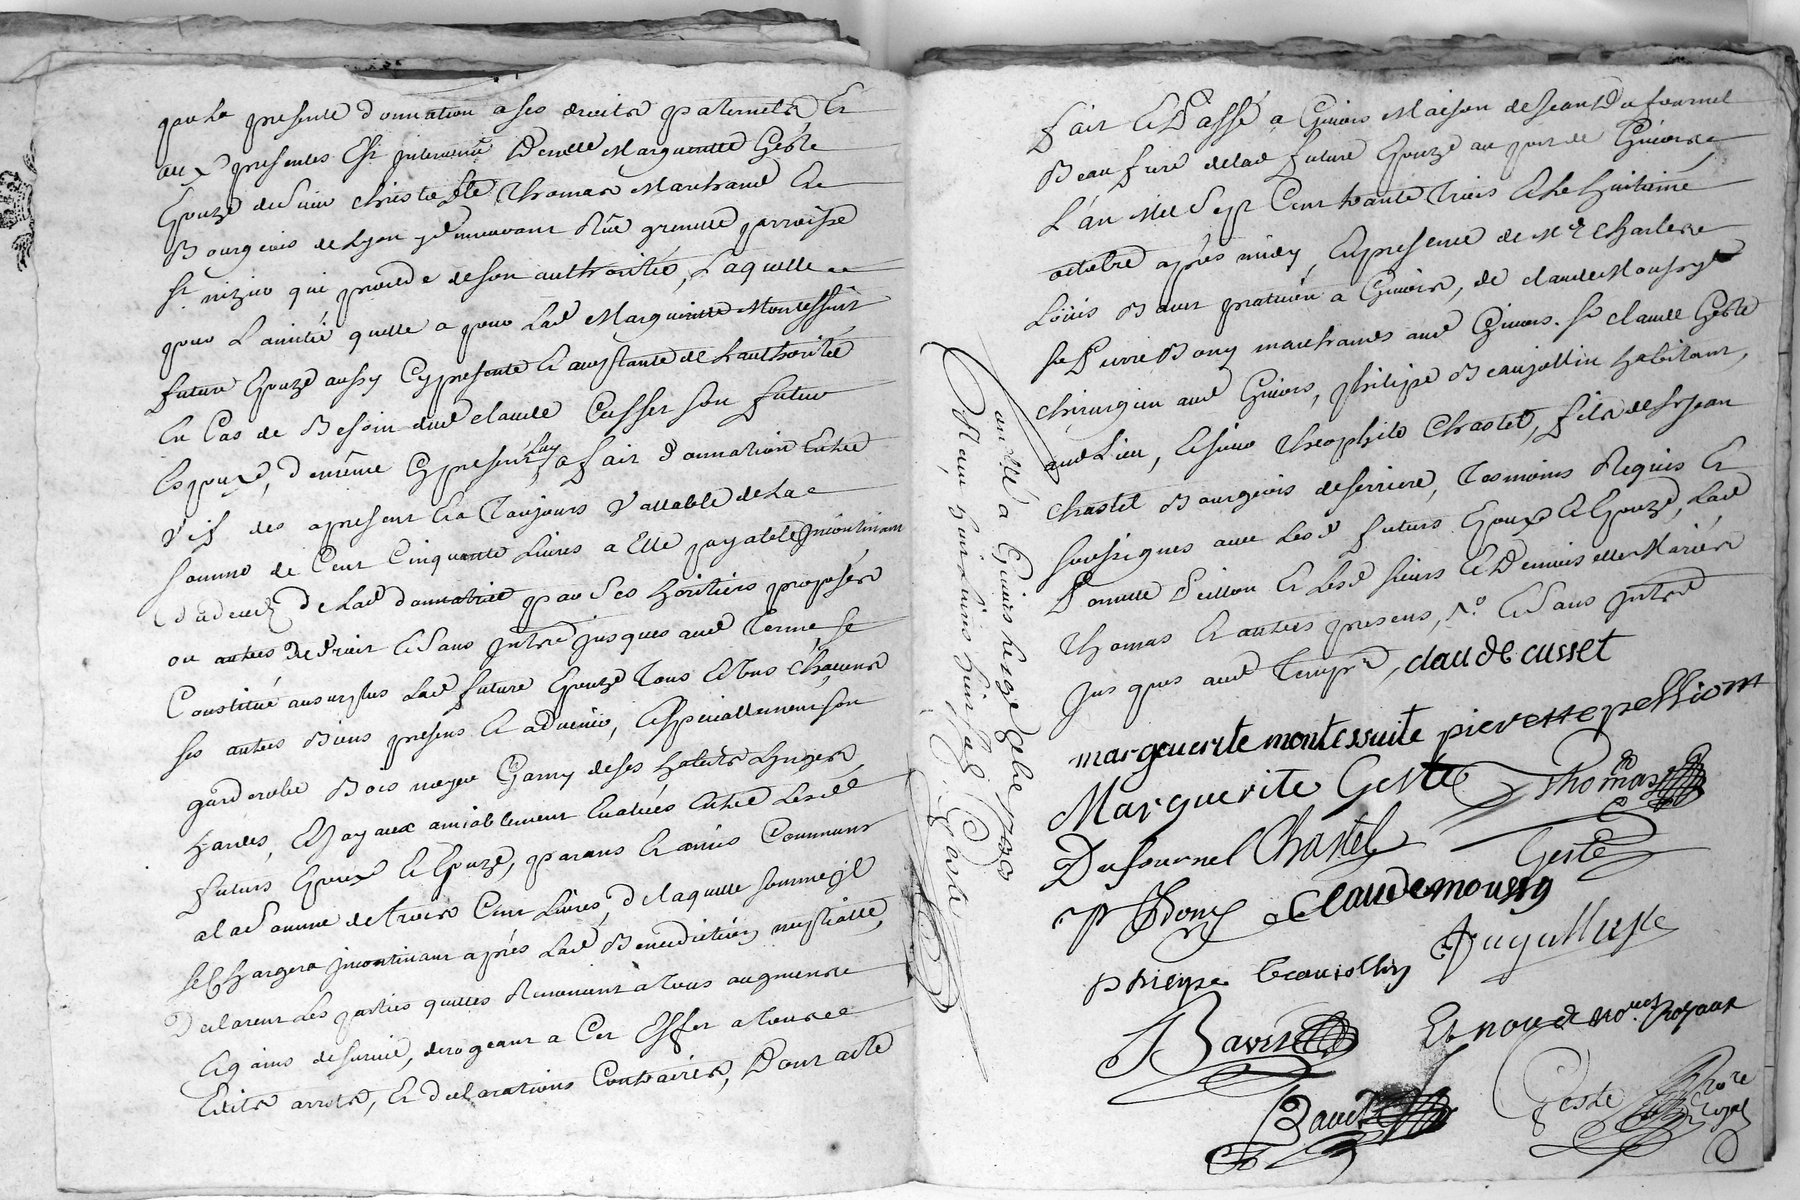 par la presente donnation a ses droits paternels, Et
aux presentes Est intervenue Demelle Margueritte Geste
Epouze du Sieur Thomas Marchand Et
Bourgeois de Lyon y demeurant Rüe grenette parroisse
St nizier qui procede de son authorité, Laquelle
pour L'amitié quelle a pour Lad Margueritte Montessuit
future Epouze aussy Cy presente Et acceptante de L'authorité
En Cas de Besoin dud claude Cusset son futur
Espoux, de même Cy present, a fait donnation Entre
vifs des apresent Et a Toujours vallable de La
somme de Cent Cinquante Livres a Elle payable incontinant
de Lad donnatrice par Ses héritiers
ou autres de droit et Sans jusques aud Terme, Se
Constitüe au surplus Lad future Epouze Tous Et Uns Chacuns
ses autres Biens presens Et advenir, Et specialement son
garderobe Bois noyer Garny de ses habits Linges
hardes, Et joyaux amiablement Evalués Entre Lesd
futurs Epoux Et Epouze, parans Et amis Communs
a la Somme de trois Cent Livres, de laquelle somme il
se Chargera incontinant après Lad Benediction nuptialle,
Declarent Les parties quelles Renoncent a tous augments
Et gains de survie, derogeant a Cet Effet a toutes
Edits arrets, Et declarations Contraires, Dont acte
Fait Et Passé a Givors Maison de Jean Dufournel
Beaufrere de lad future Epouze au port de Givors
L'an Mil Sept Cent trante Trois Et Le huitieme
octobre après midy, En presence de Me Charles
Loüis Bavet praticien a Givors, de claude Moussy
Sr Pierre Bony marchands aud Givors. Sr claude Geste
chirurgien aud Givors, philipe Beaujollin habitant
aud Lieu, Et sieur Theophile Chastel, fils de Sr Jean
Chastel Bourgeois de serriere, Tesmoins Requis Et
soussignes avec Lesd futurs Epoux Et Epouze, Lad
Demelle Peillon Et Lesd sieurs Et Demoiselle Mariés
Thomas Et autres presens, Et Sans
Jusques aud Temps, claude cusset
marguerite montessuite pierette pellion
Marguerite Geste Thomas
Dufournel Chastel Geste
P Bony Claude moussy
philipe beaujollin
Bavet Et nous d nores royaux
Bavet Geste nore royal
Controllé a Givors le 17 8bre 1733